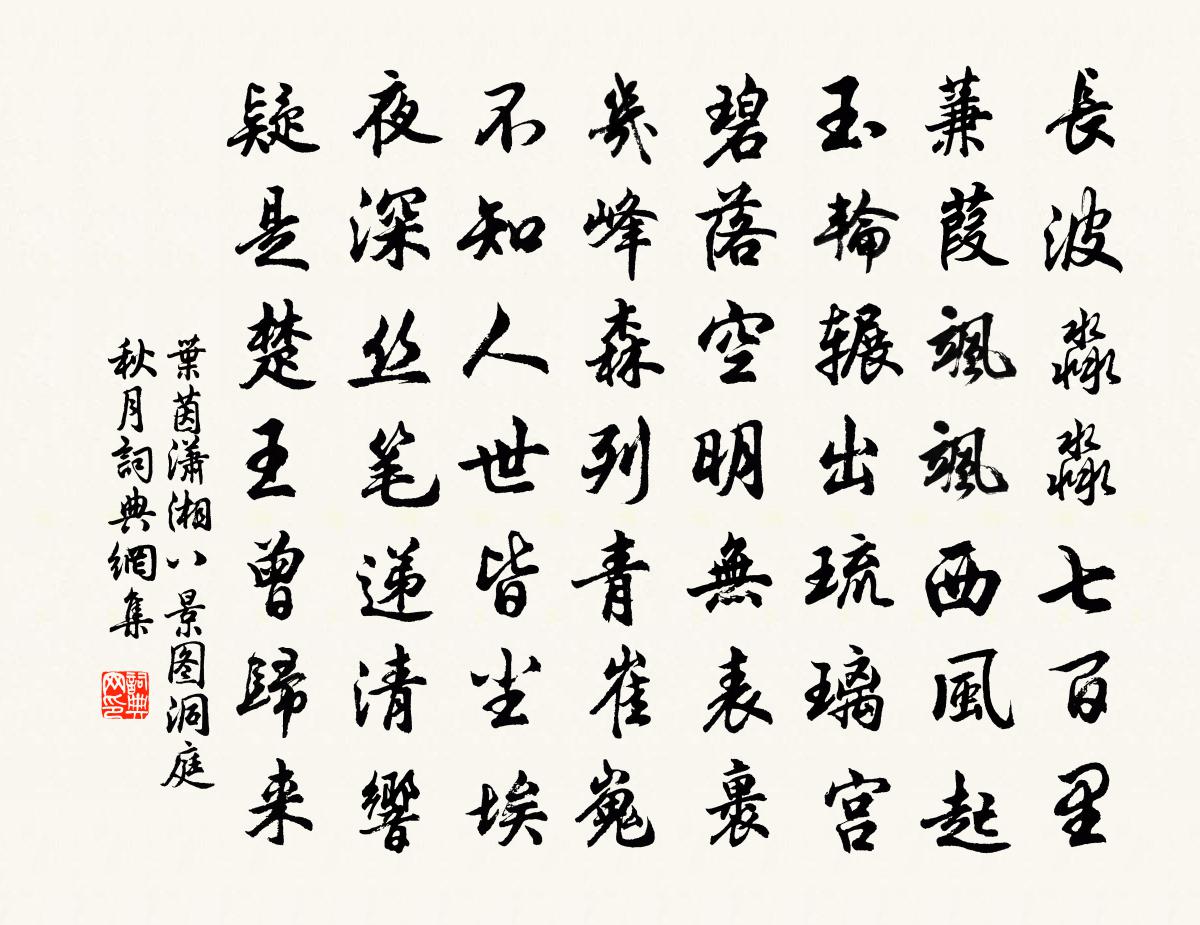 長波淼淼七百里
蒹葭颯颯西風起
玉輪辗出琉璃宮
碧落空明無表裹
幾峰森列青崔嵬
不知人世皆尘埃
夜深丝笔递清響
疑是楚王曾歸来
葉茵瀟湘八景图洞庭
秋月詞典網集
詞典网印